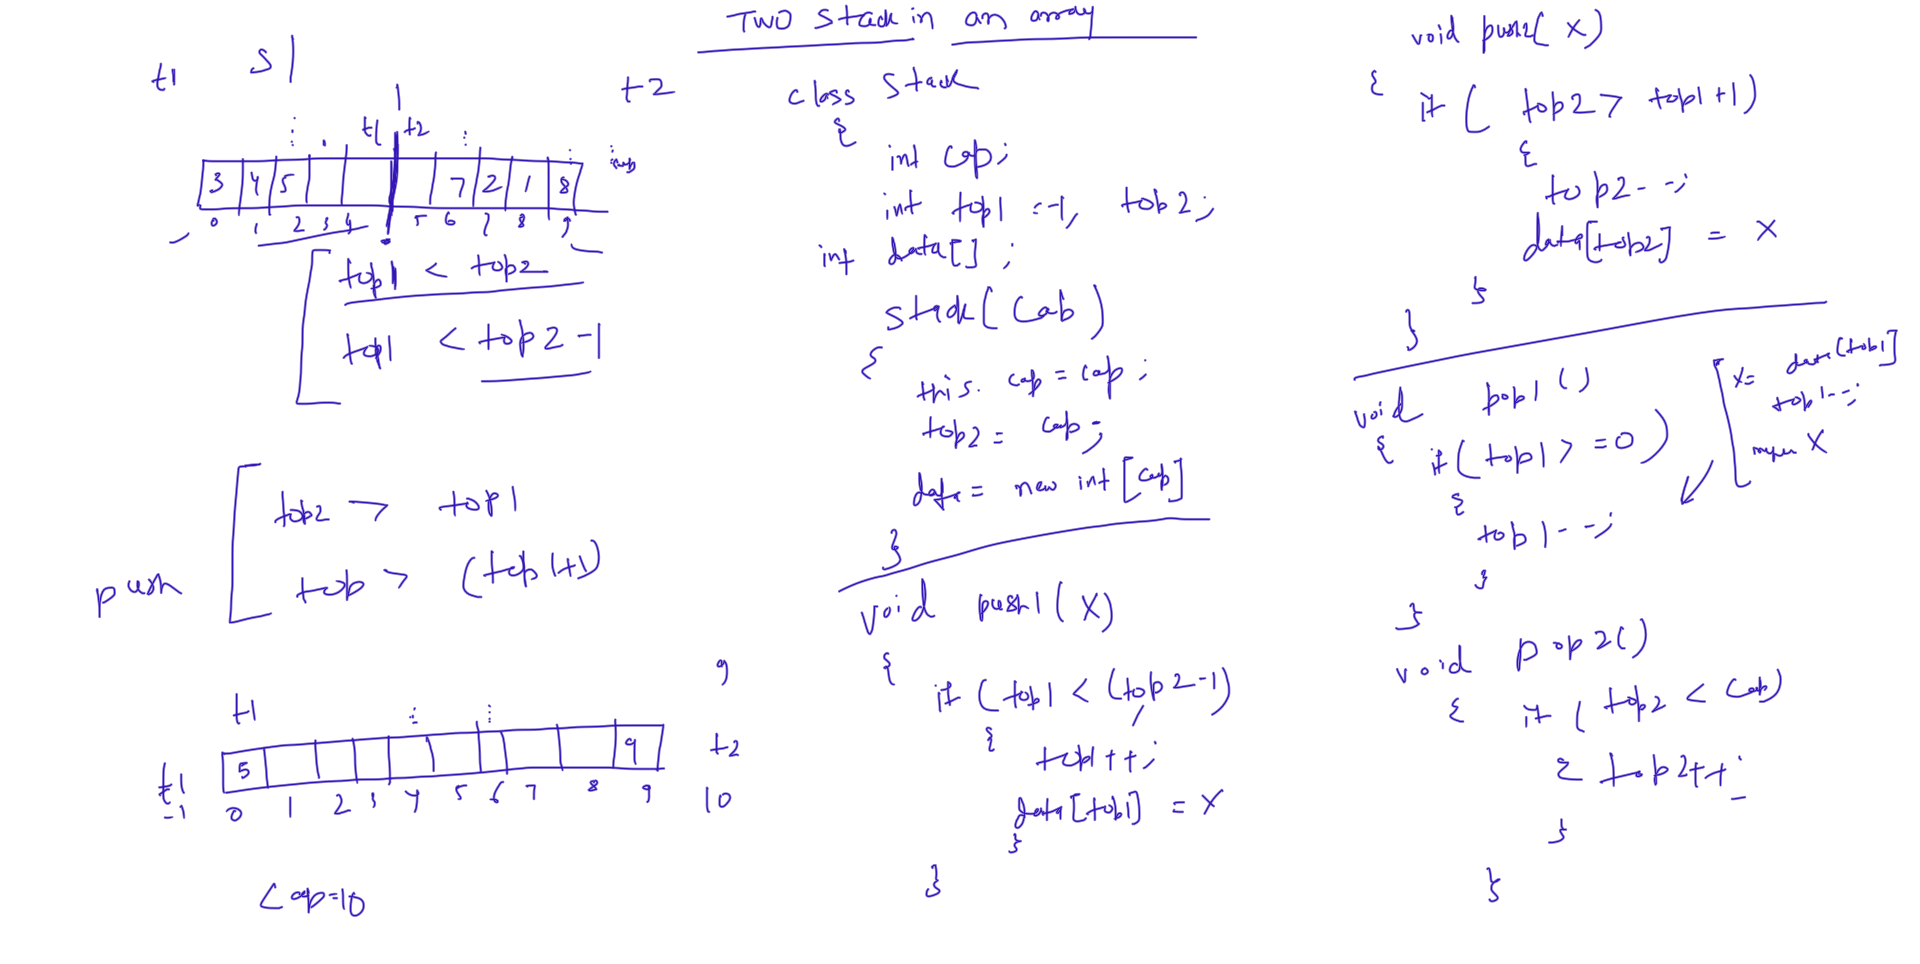 Two Stack in an array
t1 S1
t2
t1 t2
cap
3 4 5 7 2 1 8
0 1 2 3 4 5 6 7 8 9
top1 < top2
top1 < top2-1
push
top2 > top1
top > (top1+1)
9
t1
5 9
t1 t2
-1 0 1 2 3 4 5 6 7 8 9 10
Cap=10
class Stack
{
int cap;
int top1 =-1, top2;
int data[] ;
Stack(Cap)
{
this. cap = cap ;
top2 = cap;
data = new int [cap]
}
void push1(X)
{
if (top1 < (top2-1)
{
top1++;
data[top1] = X
}
}
void push2( X)
{
if ( top2 > top1+1)
{
top2--;
data[top2] = X
}
}
void pop1 ()
{
if( top1 > =0 )
{
top1--;
}
}
X= data[top1]
top1--;
X
void pop2()
{
if ( top2 < Cap)
{ top2++;
}
}